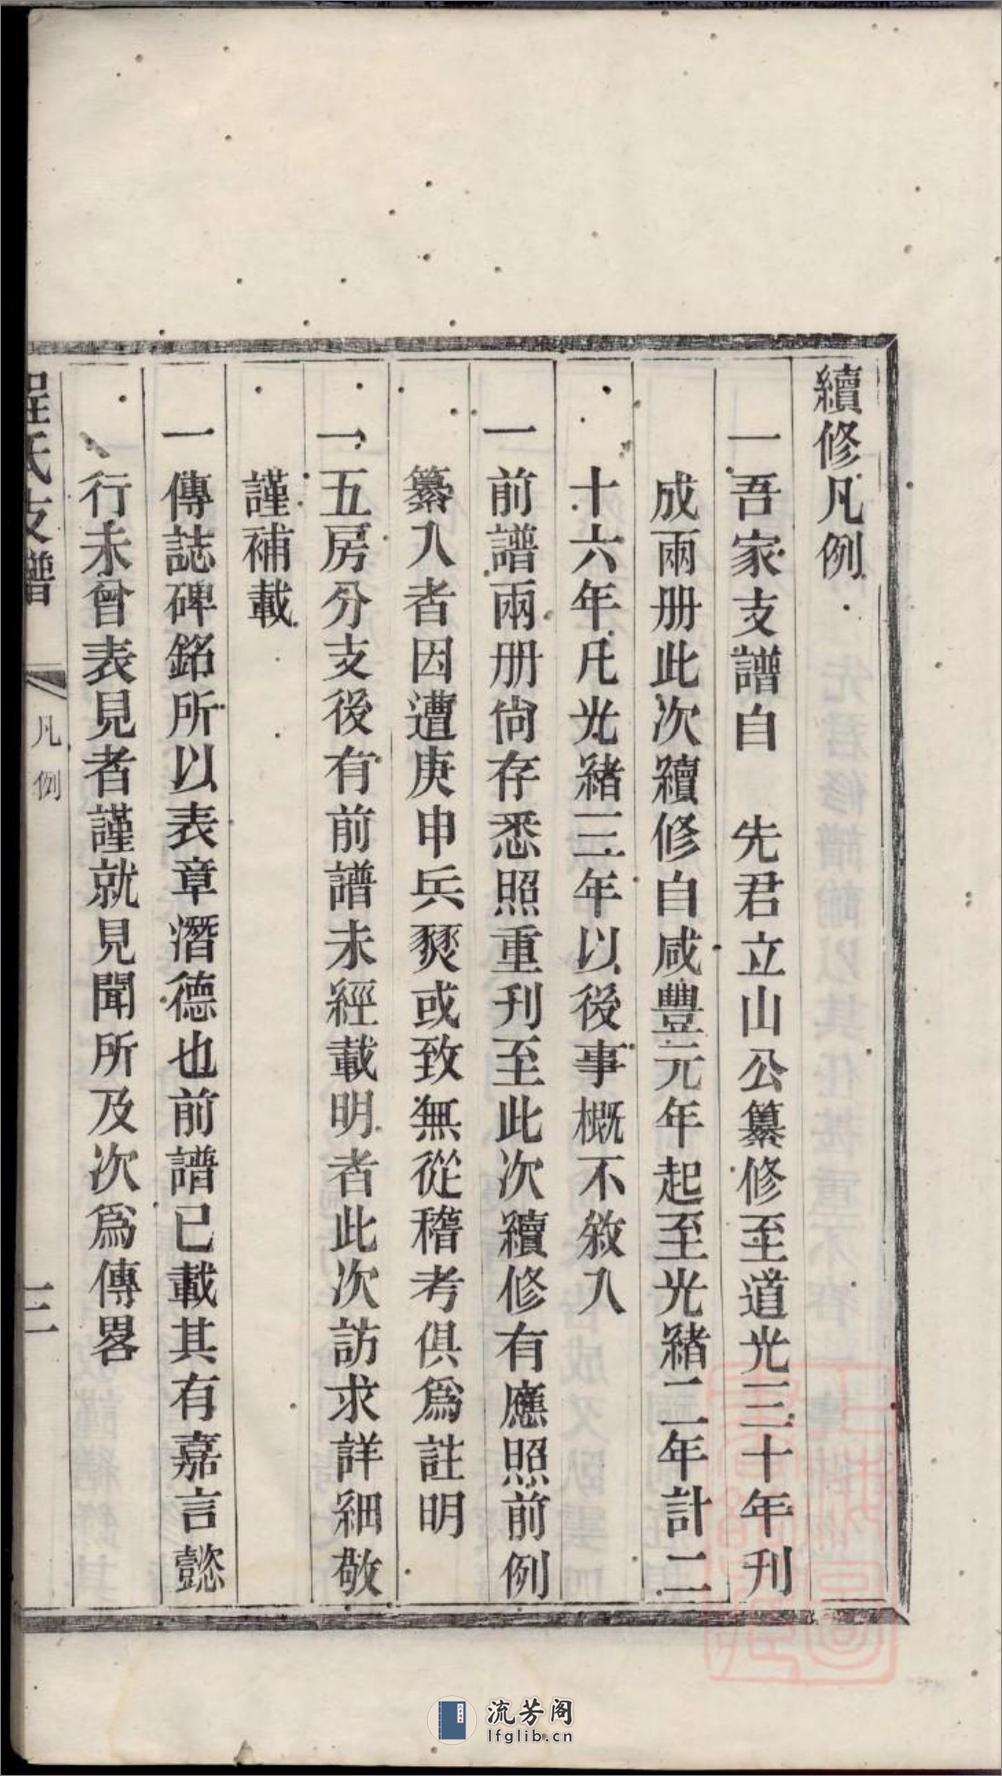 續修凡例
一吾家支譜自　先君立山公纂修至道光三十年刊
成兩册此次續修自咸豐元年起至光緒二年計二
十六年凡光緒三年以後事概不敘入
一前譜兩册尙存悉照重刊至此次續修有應照前例
纂入者因遭庚申兵燹或致無從稽考俱爲註明
一五房分支後有前譜未經載明者此次訪求詳細敬
謹補載
一傳誌碑銘所以表章潛德也前譜已載其有嘉言懿
行未曾表見者謹就見聞所及次爲傳畧
程氏支譜
凡例
三
流芳阁
lfglib.cn